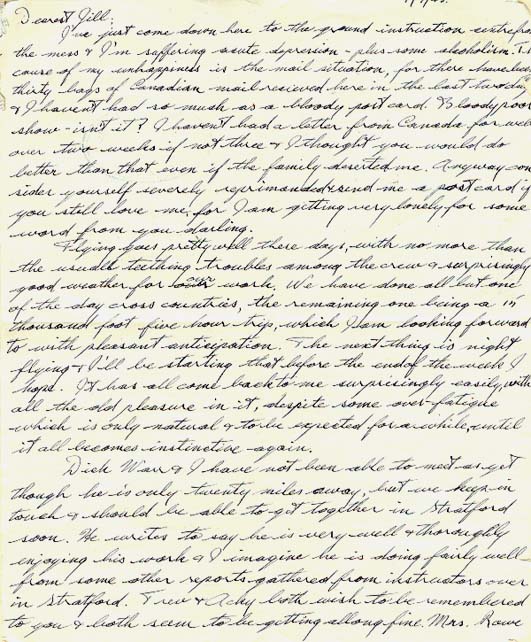 Dearest Jill:
I've just come down here to the ground instruction centre from
the mess & I'm suffering acute depression - plus some alcoholism. The
cause of my unhappiness is the mail situation, for there have been
thirty bags of Canadian mail recieved here in the last two days
& I haven't had so much as a bloody post card. Bloody poor
show - isn't it? I haven't had a letter from Canada for well
over two weeks if not three & I thought you would do
better than that even if the family deserted me. Anyway con
sider yourself severely reprimanded & send me a post card if
you still love me, for I am getting very lonely for some
word from you darling.
Flying goes pretty well these days, with no more than
the usual teething troubles among the crew & surprisingly
good weather for our work. We have done all but one
of the day cross countries, the remaining one being a
thousand foot five hour trip, which I am looking forward
to with pleasant anticipation. The next thing is night
flying & I'll be starting that before the end of the week I
hope. It has all come back to me surprisingly easily, with
all the old pleasure in it, despite some over-fatigue
which is only natural & to be expected for a while, until
it all becomes instinctive again.
Dick Warr & I have not been able to meet as yet
though he is only twenty miles away, but we keep in
touch & should be able to get together in Stratford
soon. He writes to say he is very well & thoroughly
enjoying his work & I imagine he is doing fairly well
from some other reports gathered from instructors over
in Stratford. Trev & Achy both wish to be remembered
to you & both seem to be getting along fine. Mrs. Rowe